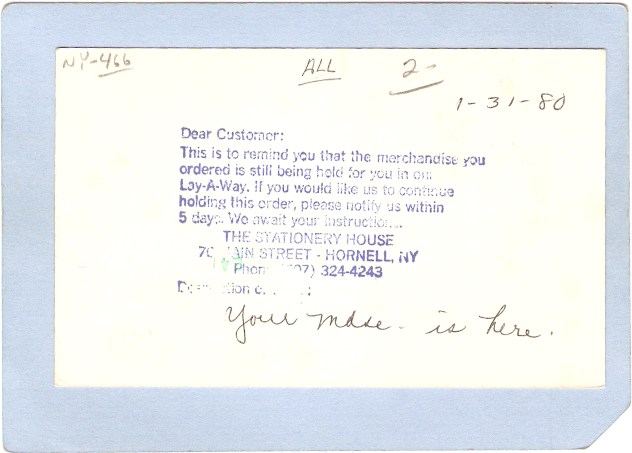 NY-466 ALL 2-
1-31-80
Dear Customer:
This is to remind you that the merchandise you
ordered is still being held for you in our
Lay-A-Way. If you would like us to continue
holding this order, please notify us within
5 days. We await your instruction...
THE STATIONERY HOUSE
MAIN STREET - HORNELL, NY
Phone 324-4243
Your mdse. is here.